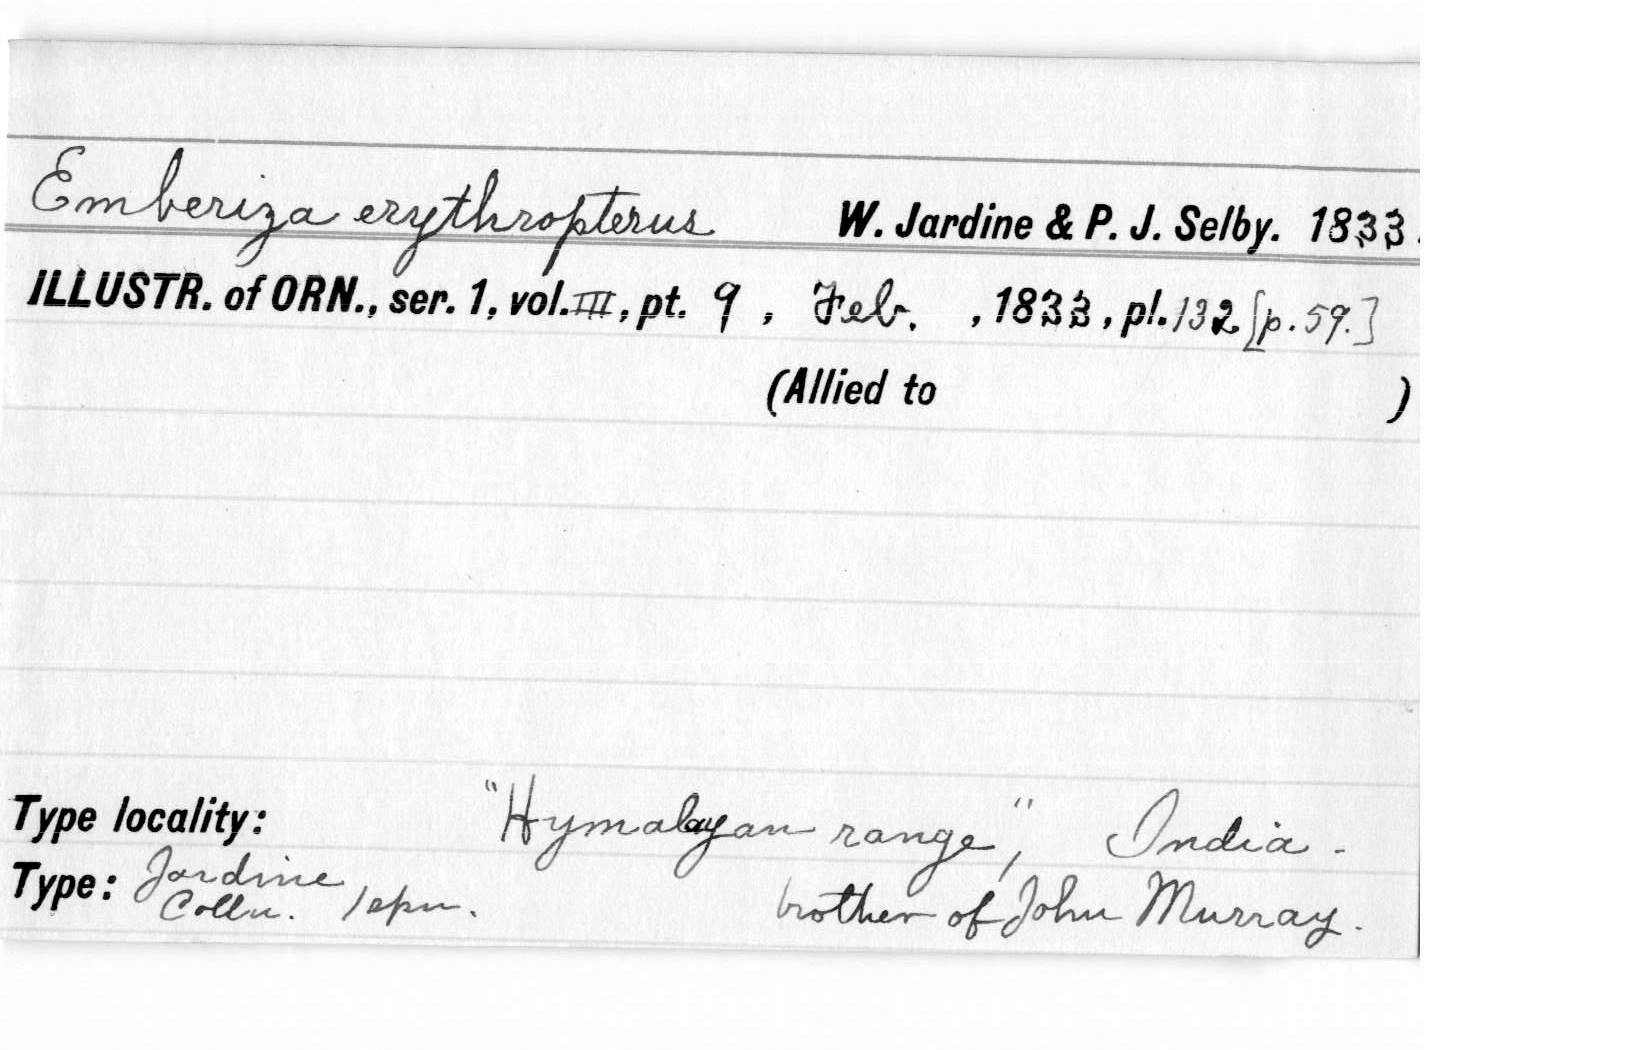 Emberiza erythropterus W. Jardine & P. J. Selby. 1833.
ILLUSTR. of ORN., ser. 1, vol. III, pt. 9, Feb. , 1833, pl. 132 [p. 59.]
(Allied to )
Type locality: "Hymalayan range," India.
Type: Jardine Colln. 1 spn. brother of John Murray.